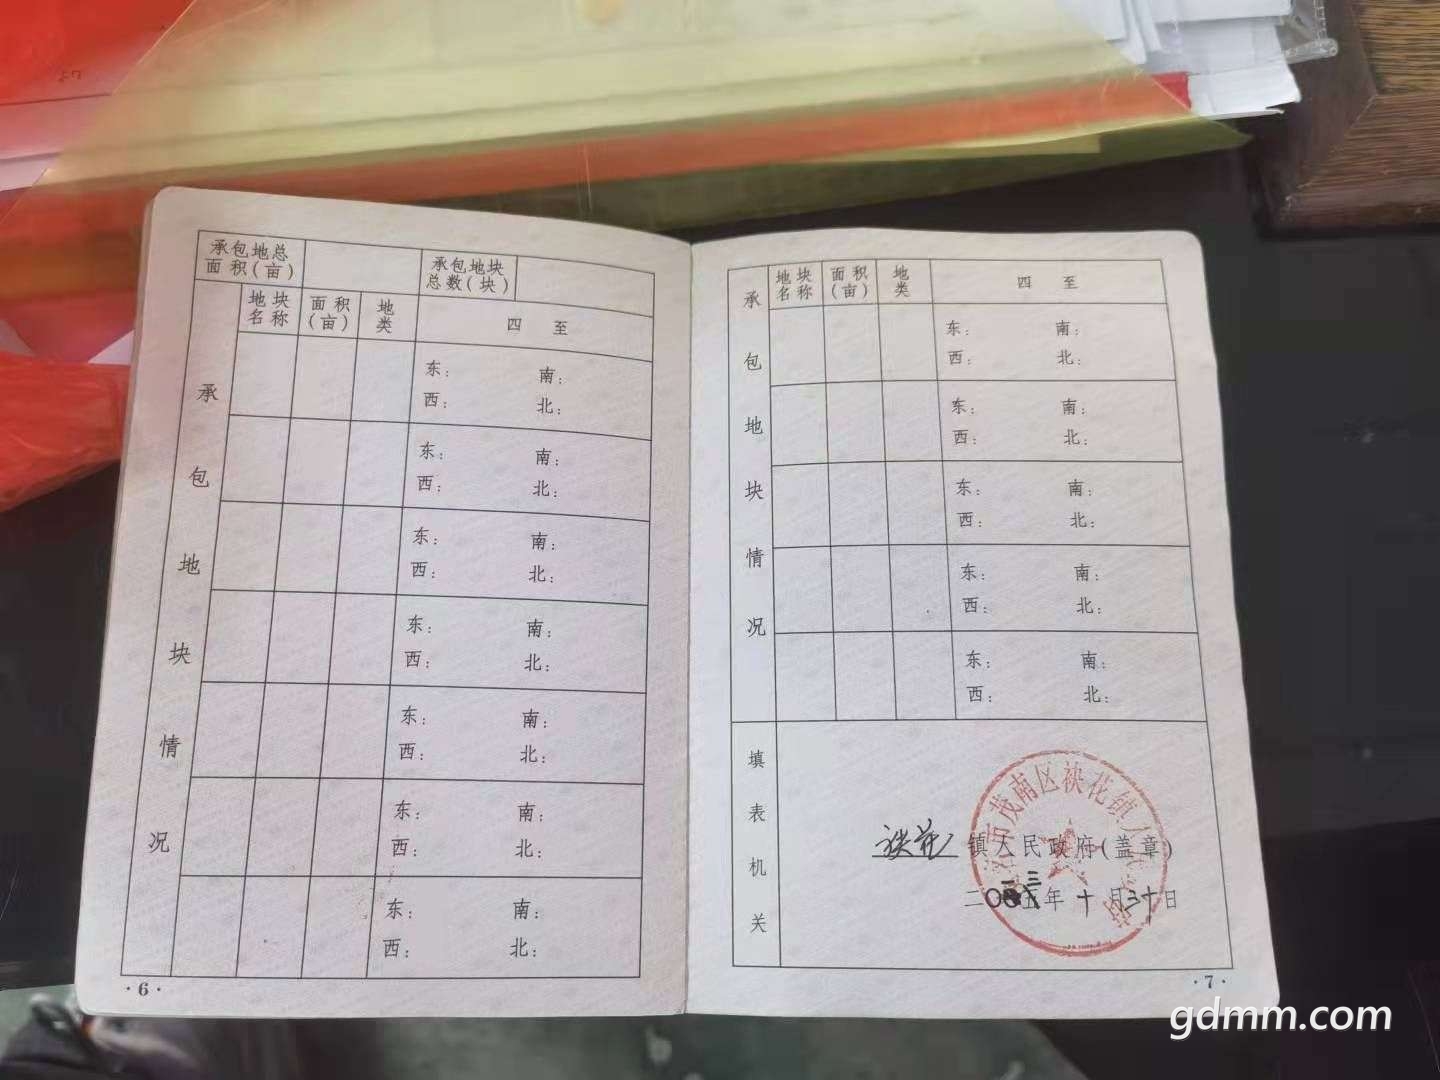 承包地总面积(亩) 承包地块总数(块)
承包地块情况
地块名称 面积(亩) 地类 四至
东: 南:
西: 北:
东: 南:
西: 北:
东: 南:
西: 北:
东: 南:
西: 北:
东: 南:
西: 北:
东: 南:
西: 北:
东: 南:
西: 北:
·6·
承包地块情况
地块名称 面积(亩) 地类 四至
东: 南:
西: 北:
东: 南:
西: 北:
东: 南:
西: 北:
东: 南:
西: 北:
东: 南:
西: 北:
填表机关
市茂南区袂花镇人
袂花镇人民政府(盖章)
年十月三十日
·7·
gdmm.com